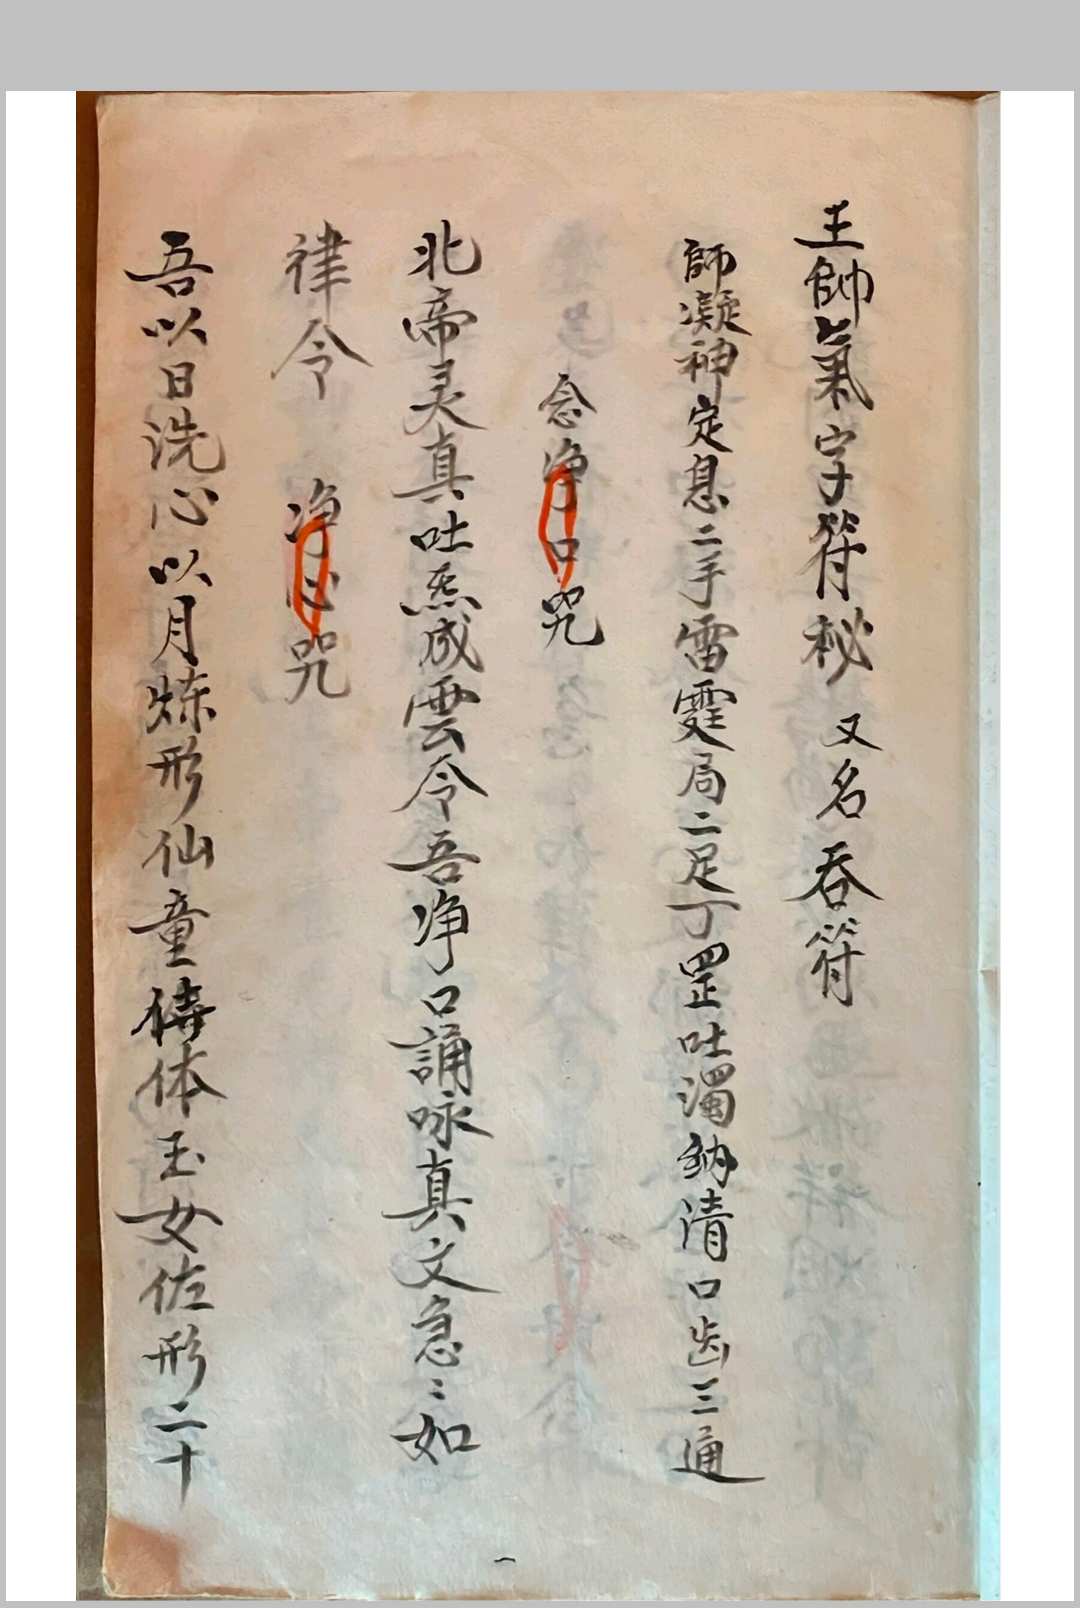 王帥氣字符秘 又名吞符
師凝神定息二手雷霆局二足丁罡吐濁納清口齿三通
念净口咒
北帝灵真吐炁成雲令吾净口誦咏真文急〻如
律令 净心咒
吾以日洗心以月炼形仙童俦体玉女佐形二十
一